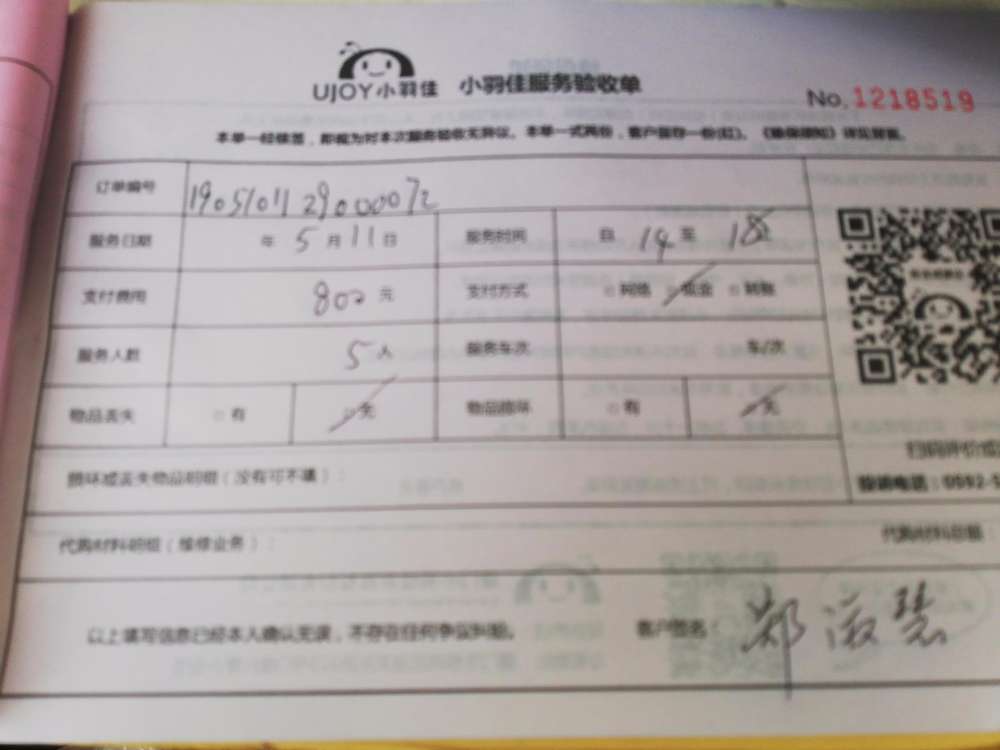 UJOY小羽佳 小羽佳服务验收单
No. 1218519
本单一经签签，即视为对本次服务验收无异议。本单一式两份，客户留存一份(红)。
订单编号 1905101129000072
服务日期 年 5 月 11 日 服务时间 自 14 至 18
支付费用 800 元 支付方式 网络 现金 转账
服务人数 5 人 服务车次 车/次
物品丢失 有 无 物品损坏 有 无
扫码评价或
损坏或丢失物品明细（没有可不填）：
投诉电话：0592-5
代购材料明细（维修业务）： 代购材料总额：
以上填写信息已经本人确认无误，不存在任何争议纠纷。 客户签名： 郑淑慧